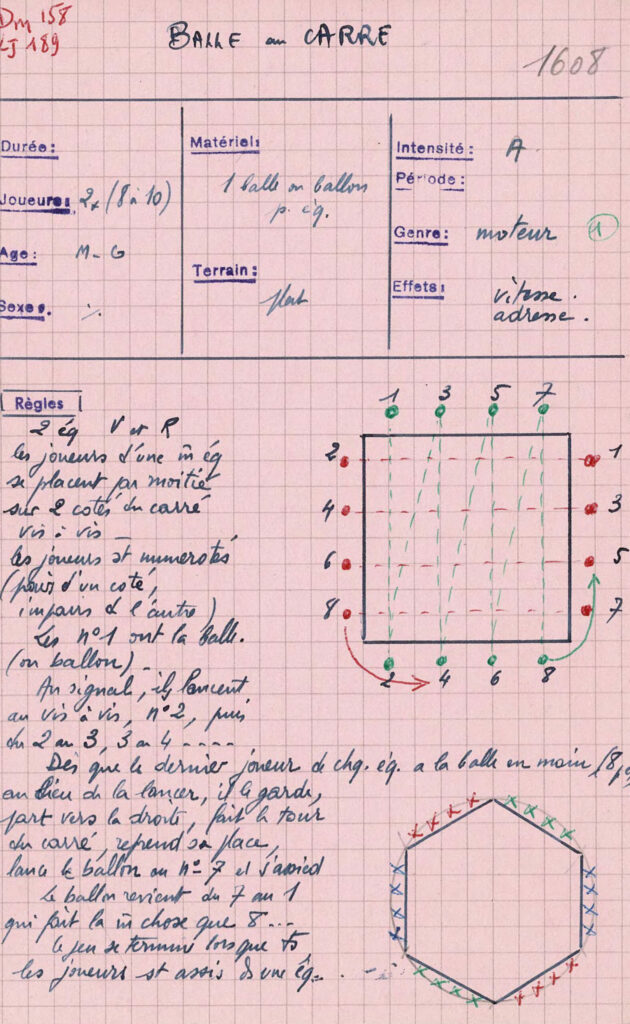 Dm 158
LJ 189
BALLE au CARRE
1608
Durée:
Joueurs: 2x (8 à 10)
Age: M-G
Sexe: ./.
Matériel:
1 balle ou ballon
p. éq.
Terrain:
plat
Intensité: A
Période:
Genre: moteur 1
Effets: vitesse.
adresse.
Règles
2 éq V et R
les joueurs d'une m̄ éq
se placent par moitié
sur 2 cotés du carré
vis à vis _
les joueurs st numerotés
(pair d'un coté,
impairs à l'autre)
Les n°1 ont la balle.
(ou ballon) _
Au signal, ils lancent
au vis à vis, n°2, puis
du 2 au 3, 3 au 4 ----
Dès que le dernier joueur de chq. éq. a la balle en main (8
au lieu de la lancer, il le garde,
part vers la droite, fait le tour
du carré, reprend sa place,
lance le ballon au n° 7 et s'assied
Le ballon revient du 7 au 1
qui fait la m̄ chose que 8 ...
Le jeu se termine lorsque ts
les joueurs st assis ds une éq..
1 3 5 7
2 1
4 3
6 5
8 7
2 4 6 8